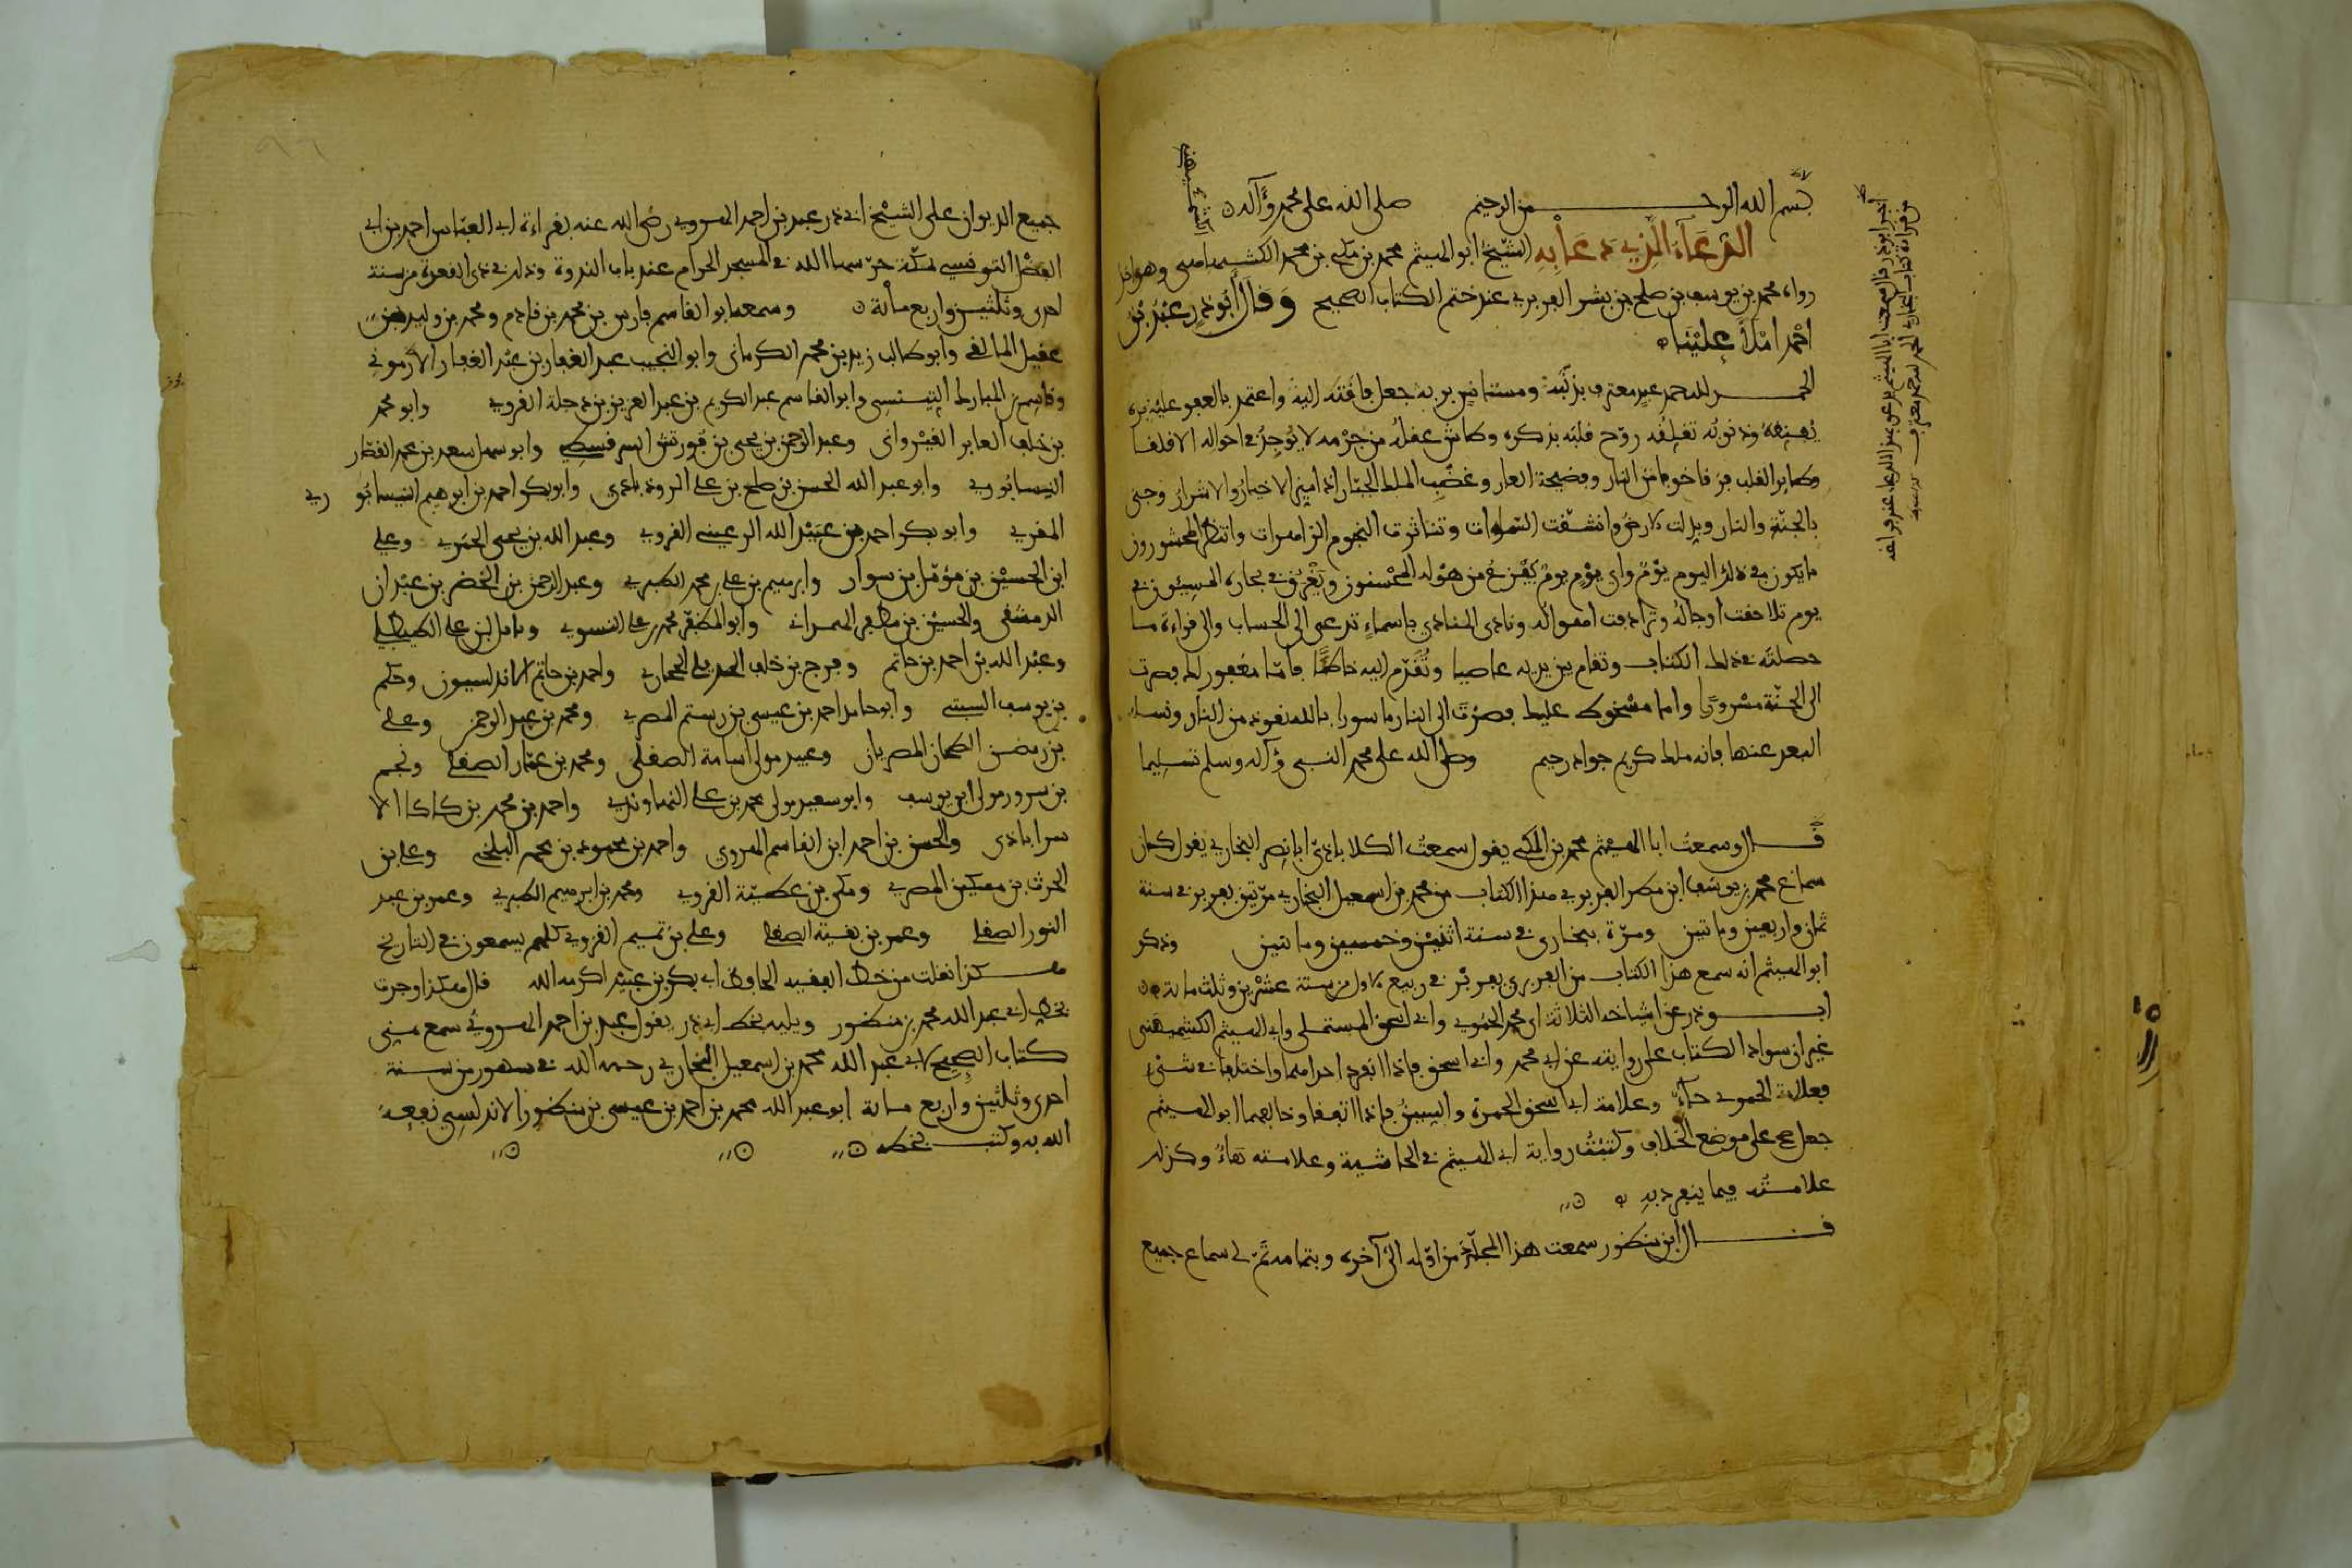 بسم الله الرحمن الرحيم صلى الله على محمد وآله
الدعاء الذي دعا به الشيخ ابو الهيثم محمد بن مكي بن محمد الكشميهني وهو ما
رواه محمد بن يوسف بن مطر بن بشر الفربري عند ختم الكتاب الصحيح وقال أبو ذر عبد بن
احمد املا علينا
الحمد لله حمد عبد معترف بذنبه ومستانس بربه جعل فاقته اليه واعتمد بالعفو عليه
وذنوبه تقلقه روح قلبه بذكره وطاش عقله من جرمه لا يوجد في احواله الا قلقا
وطاير القلب فرقا خوفا من النار وفضيحة العار وغضب الملك الجبار اذا ميز الاخيار والاشرار وجيء
بالجنة والنار وبدلت الارض وانشقت السماوات وتناثرت النجوم الزاهرات وانتظر المحشورون
ما يكون في ذلك اليوم يوم واي يوم يوم يفزع من هوله المحسنون ويغرق في بحاره المسيئون في
يوم تلاحقت اوجاله وترادفت اهواله ونادى المنادي باسماء تدعى الى الحساب والى قراءة ما
حصلته في ذلك الكتاب وتقام بين يديه عاصيا وتقدم اليه خاطئا فاما مغفور لك فصرت
الى الجنة مسرورا واما مسخوط عليك فصرت الى النار ماسورا بالله نعوذ من النار ونساله
البعد عنها فانه ملك كريم جواد رحيم وصلى الله على محمد النبي وآله وسلم تسليما
قال وسمعت ابا الهيثم محمد بن المكي يقول سمعت الكلاباذي ابا نصر البخاري يقول كان
سماع محمد بن يوسف ابن مطر الفربري هذا الكتاب من محمد بن اسمعيل البخاري مرتين بفربر في سنة
ثمان واربعين وماتين ومرة ببخارى في سنة اثنين وخمسين وماتين وذكر
ابو الهيثم انه سمع هذا الكتاب من الفربري بفربر في ربيع الاول من سنة عشرين وثلث ماية
أبو ذر عن اشياخه الثلاثة ابي محمد الحموي وابي اسحق المستملي وابي الهيثم الكشميهني
غير ان سواد الكتاب على روايته عن ابي محمد وابي اسحق فاذا انفرد احدهما واختلفا في شيء
فعلامة الحموي حاء وعلامة ابي اسحق الحمرة والسين فاذا اتفقا وخالفهما ابو الهيثم
جعل صح على موضع الخلاف وكتبت رواية ابي الهيثم في الحاشية وعلامته هاء وكذلك
علامته فيما ينفرد به
قال ابن منظور سمعت هذا المجلد من اوله الى آخره وبتمامه تم لي سماع جميع
جميع الديوان على الشيخ ابي ذر عبد بن احمد الهروي رضي الله عنه بقراءة ابي العباس احمد بن ابي
الفضل التونسي بمكة حرسها الله في المسجد الحرام عند باب الندوة وذلك في ذي القعدة من سنة
احدى وثلثين واربع مائة وسمعه ابو القاسم فارس بن محمد بن قادم ومحمد بن وليد بن
عقيل المالقي وابو طالب زيد بن محمد الكرماني وابو النجيب عبد الغفار بن عبد الغفار الارموني
وقاسم بن المبارك التينسي وابو القاسم عبد الكريم بن عبد العزيز بن دجلة القروي وابو محمد
بن خلف العابر القيرواني وعبد الرحمن بن يحيى بن فورتش السرقسطي وابو سهل سعد بن محمد القطار
النيسابوري وابو عبد الله الحسن بن صلح بن علي الروذباري وابو بكر احمد بن ابرهيم النيسابوري
المقري وابو بكر احمد بن عبد الله الرعيني القروي وعبد الله بن يحيى الحموي وعلي
ابن الحسين بن مؤمل بن سوار وابرهيم بن علي بن محمد الطبري وعبد الرحمن بن الخضر بن عبدان
الدمشقي والحسين بن مظفر الهمداني وابو المظفر محمد بن علي النسوي
وعبد الله بن احمد بن حاتم وفرج بن خلف الحجاري واحمد بن حاتم الاندلسيون وحكم
بن يوسف السبتي وابو حامد احمد بن عيسى بن رستم المصري ومحمد بن عبد الرحمن وعلي
بن رمضن الطحان المصريان وعبيد مولى اسامة الصقلي ومحمد بن عمار الصقلي ونجم
بن سرور مولى ابن يوسف وابو سعيد مولى محمد بن علي النهاوندي واحمد بن محمد بن كاكا الا
سراباذي والحسن بن احمد ابن القاسم الهروي واحمد بن محمود بن محمد البلخي وعلي بن
الحرث بن مسكين المصري ومكي بن عطية القروي ومحمد بن ابرهيم الطبري وعمر بن عبد
النور الصقلي وعمر بن الصقلي وعلي بن تميم القروي كلهم يسمعون في التاريخ
هكذا نقلت من خط الفقيه الحافظ ابي بكر بن عبيد اكرمه الله قال هكذا وجدت
بخط ابي عبد الله محمد بن منظور ويليه بخط ابي ذر يقول عبد بن احمد الهروي سمع مني
كتاب الصحيح لابي عبد الله محمد بن اسمعيل البخاري رحمه الله في شهور من سنة
احدى وثلثين واربع مائة ابو عبد الله محمد بن احمد بن عيسى بن منظور الاندلسي نفعه
الله به وكتب بخطه